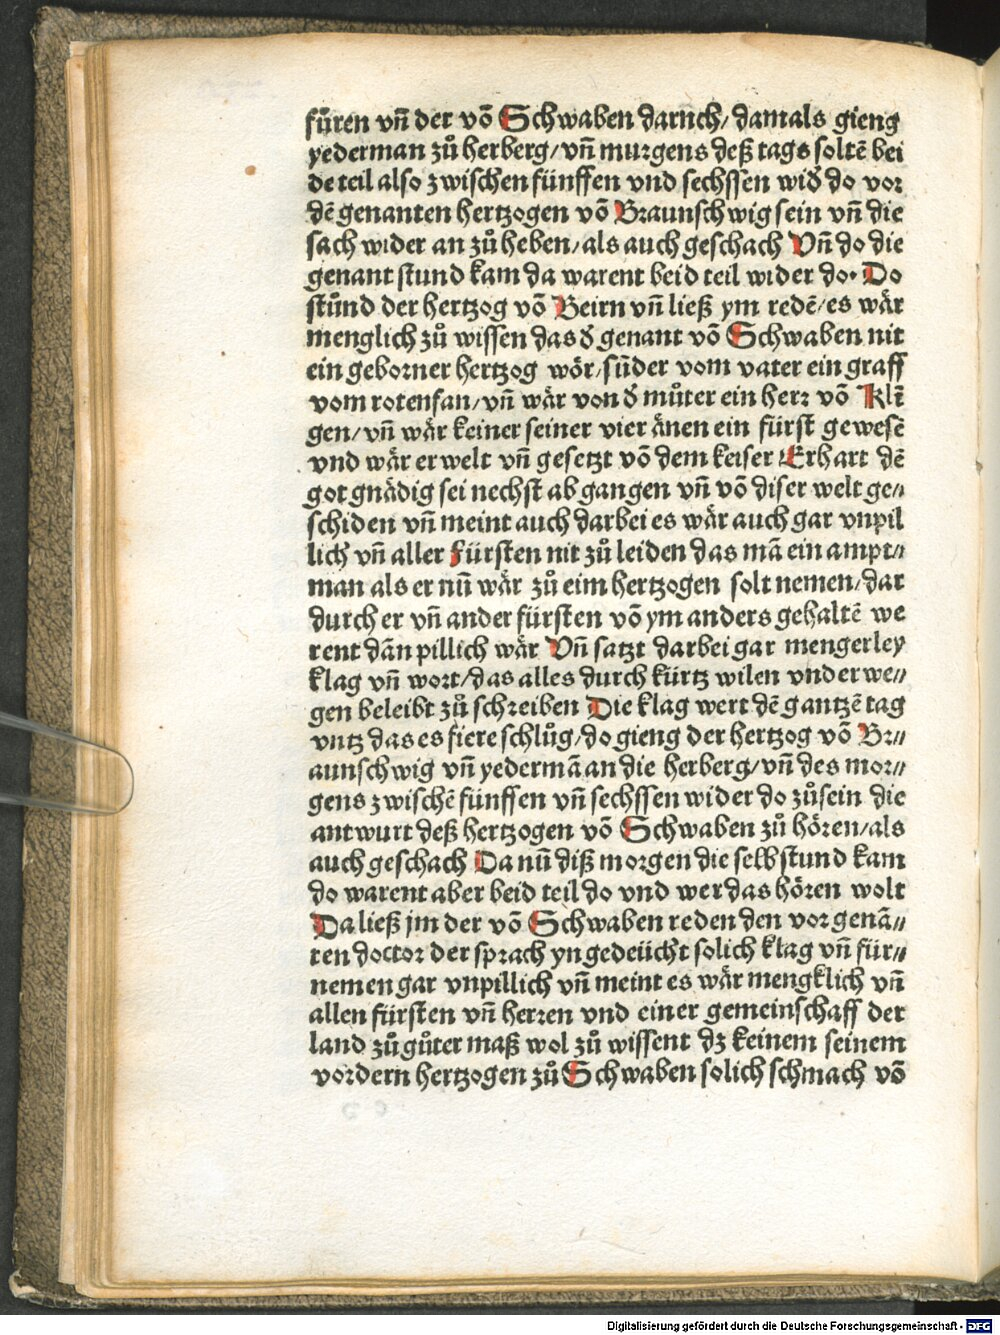 fůren vñ der võ Schwaben darnch/ damals gieng
yederman zů herberg/ vñ murgens deß tags soltẽ bei
de teil also zwischen fünffen vnd sechssen wiđ do vor
dẽ genanten hertzogen võ Braunschwig sein vñ die
sach wider an zů heben/ als auch geschach Vñ do die
genant stund kam da warent beid teil wider do· Do
stůnd der hertzog võ Beirn vñ ließ ym redẽ/ es wär
menglich zů wissen das đ genant võ Schwaben nit
ein geborner hertzog wör/ sůder vom vater ein graff
vom rotenfan/ vñ wär von đ můter ein herꝛ võ Klĩ
gen/ vñ wär keiner seiner vier änen ein fürst gewesẽ
vnd wär erwelt vñ gesetzt võ dem keiser Erhart dẽ
got gnädig sei nechst abgangen vñ võ diser welt ge//
schiden vñ meint auch darbei es wär auch gar vnpil
lich vñ aller fürsten nit zů leiden das mã ein ampt//
man als er nũ wär zů eim hertzogen solt nemen/ dar
durch er vñ ander fürsten võ ym anders gehaltẽ we
rent dãn pillich wär Vñ satzt darbei gar mengerley
klag vñ wort/ das alles durch kürtz wilen vnderwe//
gen beleibt zů schreiben Die klag wert dẽ gantzẽ tag
vntz das es fiere schlůg/ do gieng der hertzog võ Br//
aunschwig vñ yedermã an die herberg/ vñ des mor//
gens zwischẽ fünffen vñ sechssen wider do zůsein die
antwurt deß hertzogen võ Schwaben zů hören/ als
auch geschach Da nũ diß morgen die selb stund kam
do warent aber beid teil do vnd wer das hören wolt
Da ließ jm der võ Schwaben reden den vorgenã//
ten doctor der sprach yn gedeücht solich klag vñ für//
nemen gar vnpillich vñ meint es wär mengklich vñ
allen fürsten vñ herꝛen vnd einer gemeinschaff der
land zů gůter maß wol zů wissent dz keinem seinem
vordern hertzogen zů Schwaben solich schmach võ
Digitalisierung gefördert durch die Deutsche Forschungsgemeinschaft - DFG